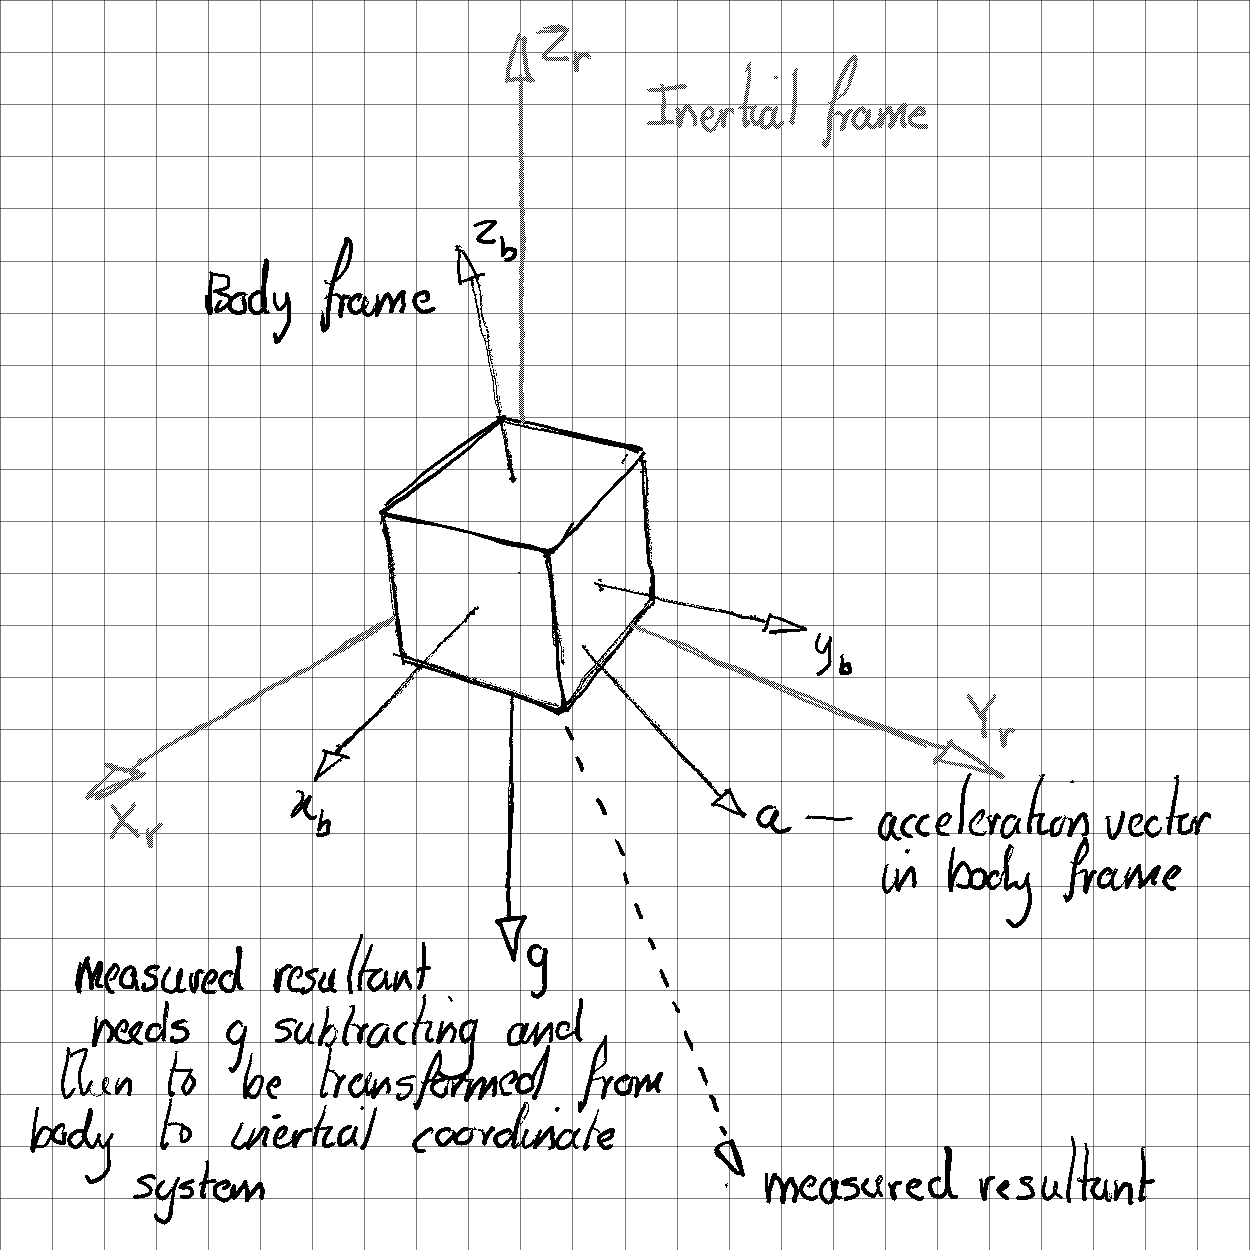 Zr
Inertial frame
zb
Body frame
yb
Yr
xb
Xr
a — acceleration vector
in body frame
g
measured resultant
needs g subtracting and
then to be transformed from
body to inertial coordinate
system
measured resultant